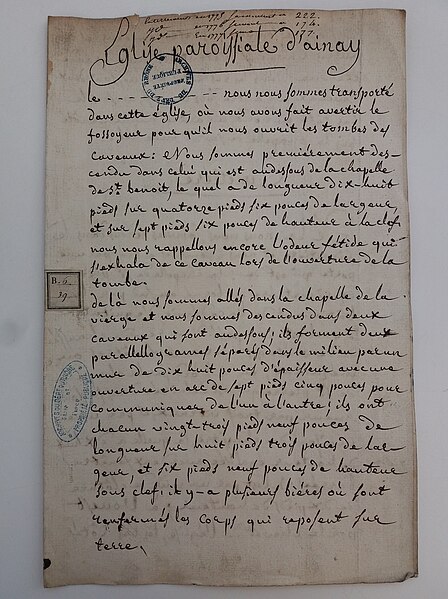 en 1775 222.
en 1776 174.
en 1777 177.
Eglise paroissiale d'ainay
le - - - - - - - - nous nous sommes transporté
dans cette église, où nous avons fait avertir le
fossoyeur pour qu'il nous ouvrit les tombes des
caveaux: Nous sommes premiérement des-
cendu dans celui qui est audessous de la chapelle
de St. benoit, le quel a de longueur dix-huit
pieds sur quatorze pieds six pouces de largeur,
et sur sept pieds six pouces de hauteur à la clef.
nous nous rappellons encore l'odeur fétide qui
s'exhala de ce caveau lors de l'ouverture de la
tombe.
B. 6
39
de là nous sommes allés dans la chapelle de la
vierge et nous sommes descendus dans deux
caveaux qui sont audessous; ils forment deux
parallellogrames séparés dans le milieu par un
mur de dix huit pouces d'épaisseur avec une
ouverture en arc de sept pieds cinq pouces pour
communiquer de l'un à l'autre; ils ont
chacun vingt-trois pieds neuf pouces de
longueur sur huit pieds trois pouces de lar-
geur, et six pieds neuf pouces de hauteur
sous clef; il y-a plusieurs biéres où sont
renfermés les corps qui reposent sur
terre,